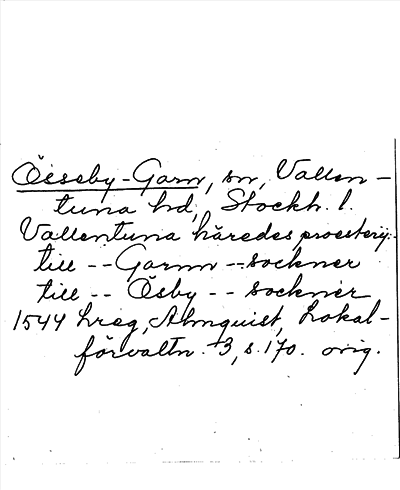 Össeby-Garn, sn, Vallen-
tuna hd, Stockh. l.
Vallentuna häredes proesterij:
till -- Garnn -- sockner
till -- Ösby -- sockner
1544 Lreg, Almquist, Lokal-
förvaltn. +3, s. 170. orig.